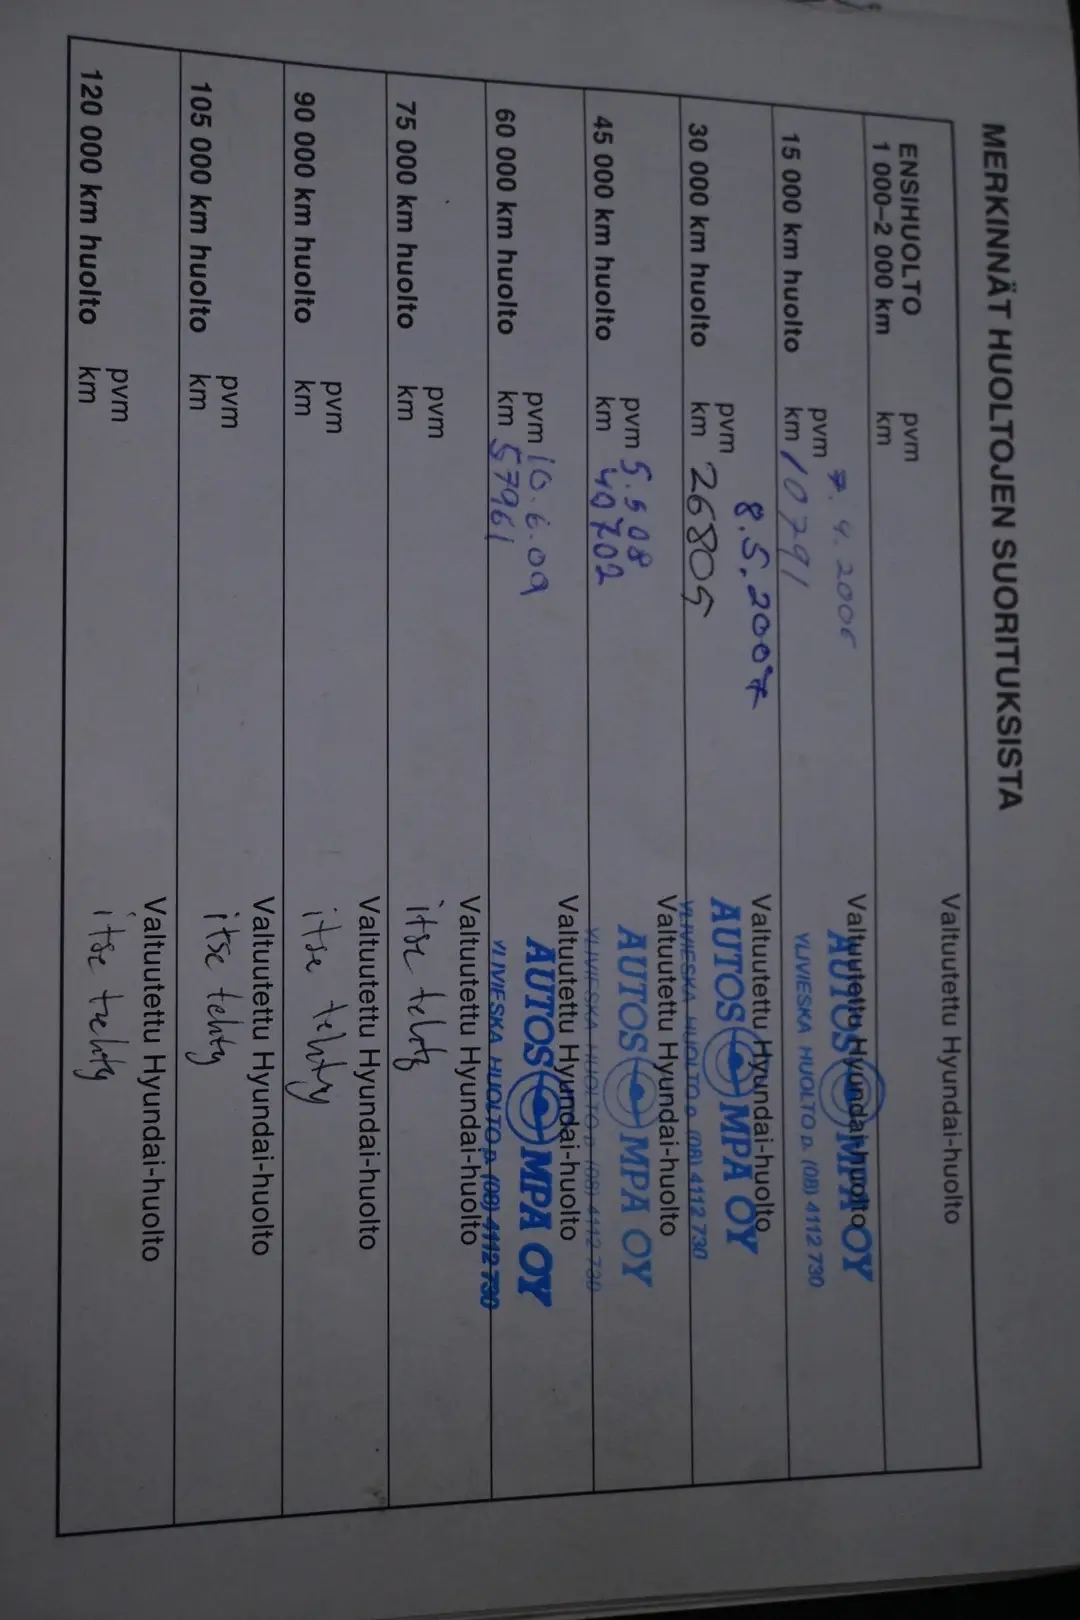 MERKINNÄT HUOLTOJEN SUORITUKSISTA
ENSIHUOLTO pvm Valtuutettu Hyundai-huolto
1 000–2 000 km km
7. 4. 2006
15 000 km huolto pvm Valtuutettu Hyundai-huolto
km 10791 AUTOSOMPA OY
YLIVIESKA HUOLTO p. (08) 4112 730
8.5.2007
30 000 km huolto pvm Valtuutettu Hyundai-huolto
km 26805 AUTOSOMPA OY
YLIVIESKA HUOLTO p. (08) 4112 730
45 000 km huolto pvm 5.5 08 Valtuutettu Hyundai-huolto
km 40702 AUTOSOMPA OY
YLIVIESKA HUOLTO p. (08) 4112 730
60 000 km huolto pvm 10.6.09 Valtuutettu Hyundai-huolto
km 57961 AUTOSOMPA OY
YLIVIESKA HUOLTO p. (08) 4112 730
75 000 km huolto pvm Valtuutettu Hyundai-huolto
km itse tehty
90 000 km huolto pvm Valtuutettu Hyundai-huolto
km itse tehty
105 000 km huolto pvm Valtuutettu Hyundai-huolto
km itse tehty
120 000 km huolto pvm Valtuutettu Hyundai-huolto
km itse tehty